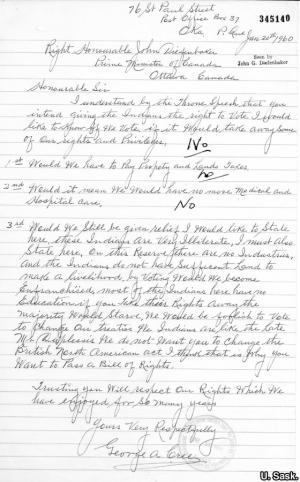 76 St Paul Street
Post Office Box 37
Oka P. Que
Jan 20th 1960
345140
Seen by
John G. Diefenbaker
Right Honourable John Diefenbaker
Prime Minister of Canada
Ottawa Canada
Honourable Sir
I understand by the Throne Speech that you
intend giving the Indians the right to Vote I would
like to know if We Vote if it Would take away some
of our rights and Privileges,
No
1st Would We have to Pay Property and Lands Taxes
No
2nd Would it mean We Would have no more Medical and
Hospital care,
No
3rd Would We Still be given relief I Would like to State
here, these Indians are Very Illiterate, I must also
State here, On this Reserve there are no Industries,
And the Indians do not have Land to
make a livelihood, by Voting Would We become
Enfranchised, most of the Indians here have no
Education, if you Take these Rights Away the
majority Would Starve, We Would be to Vote
to Change Our Treaties We Indians are like the late
Mr. Duplessis We do not Want you to Change the
British North American act I think that is Why you
Want to Pass a Bill of Rights.
Trusting you Will respect Our Rights Which We
have enjoyed for So many years
Yours Very Respectfully
George A. Cree
U. Sask.